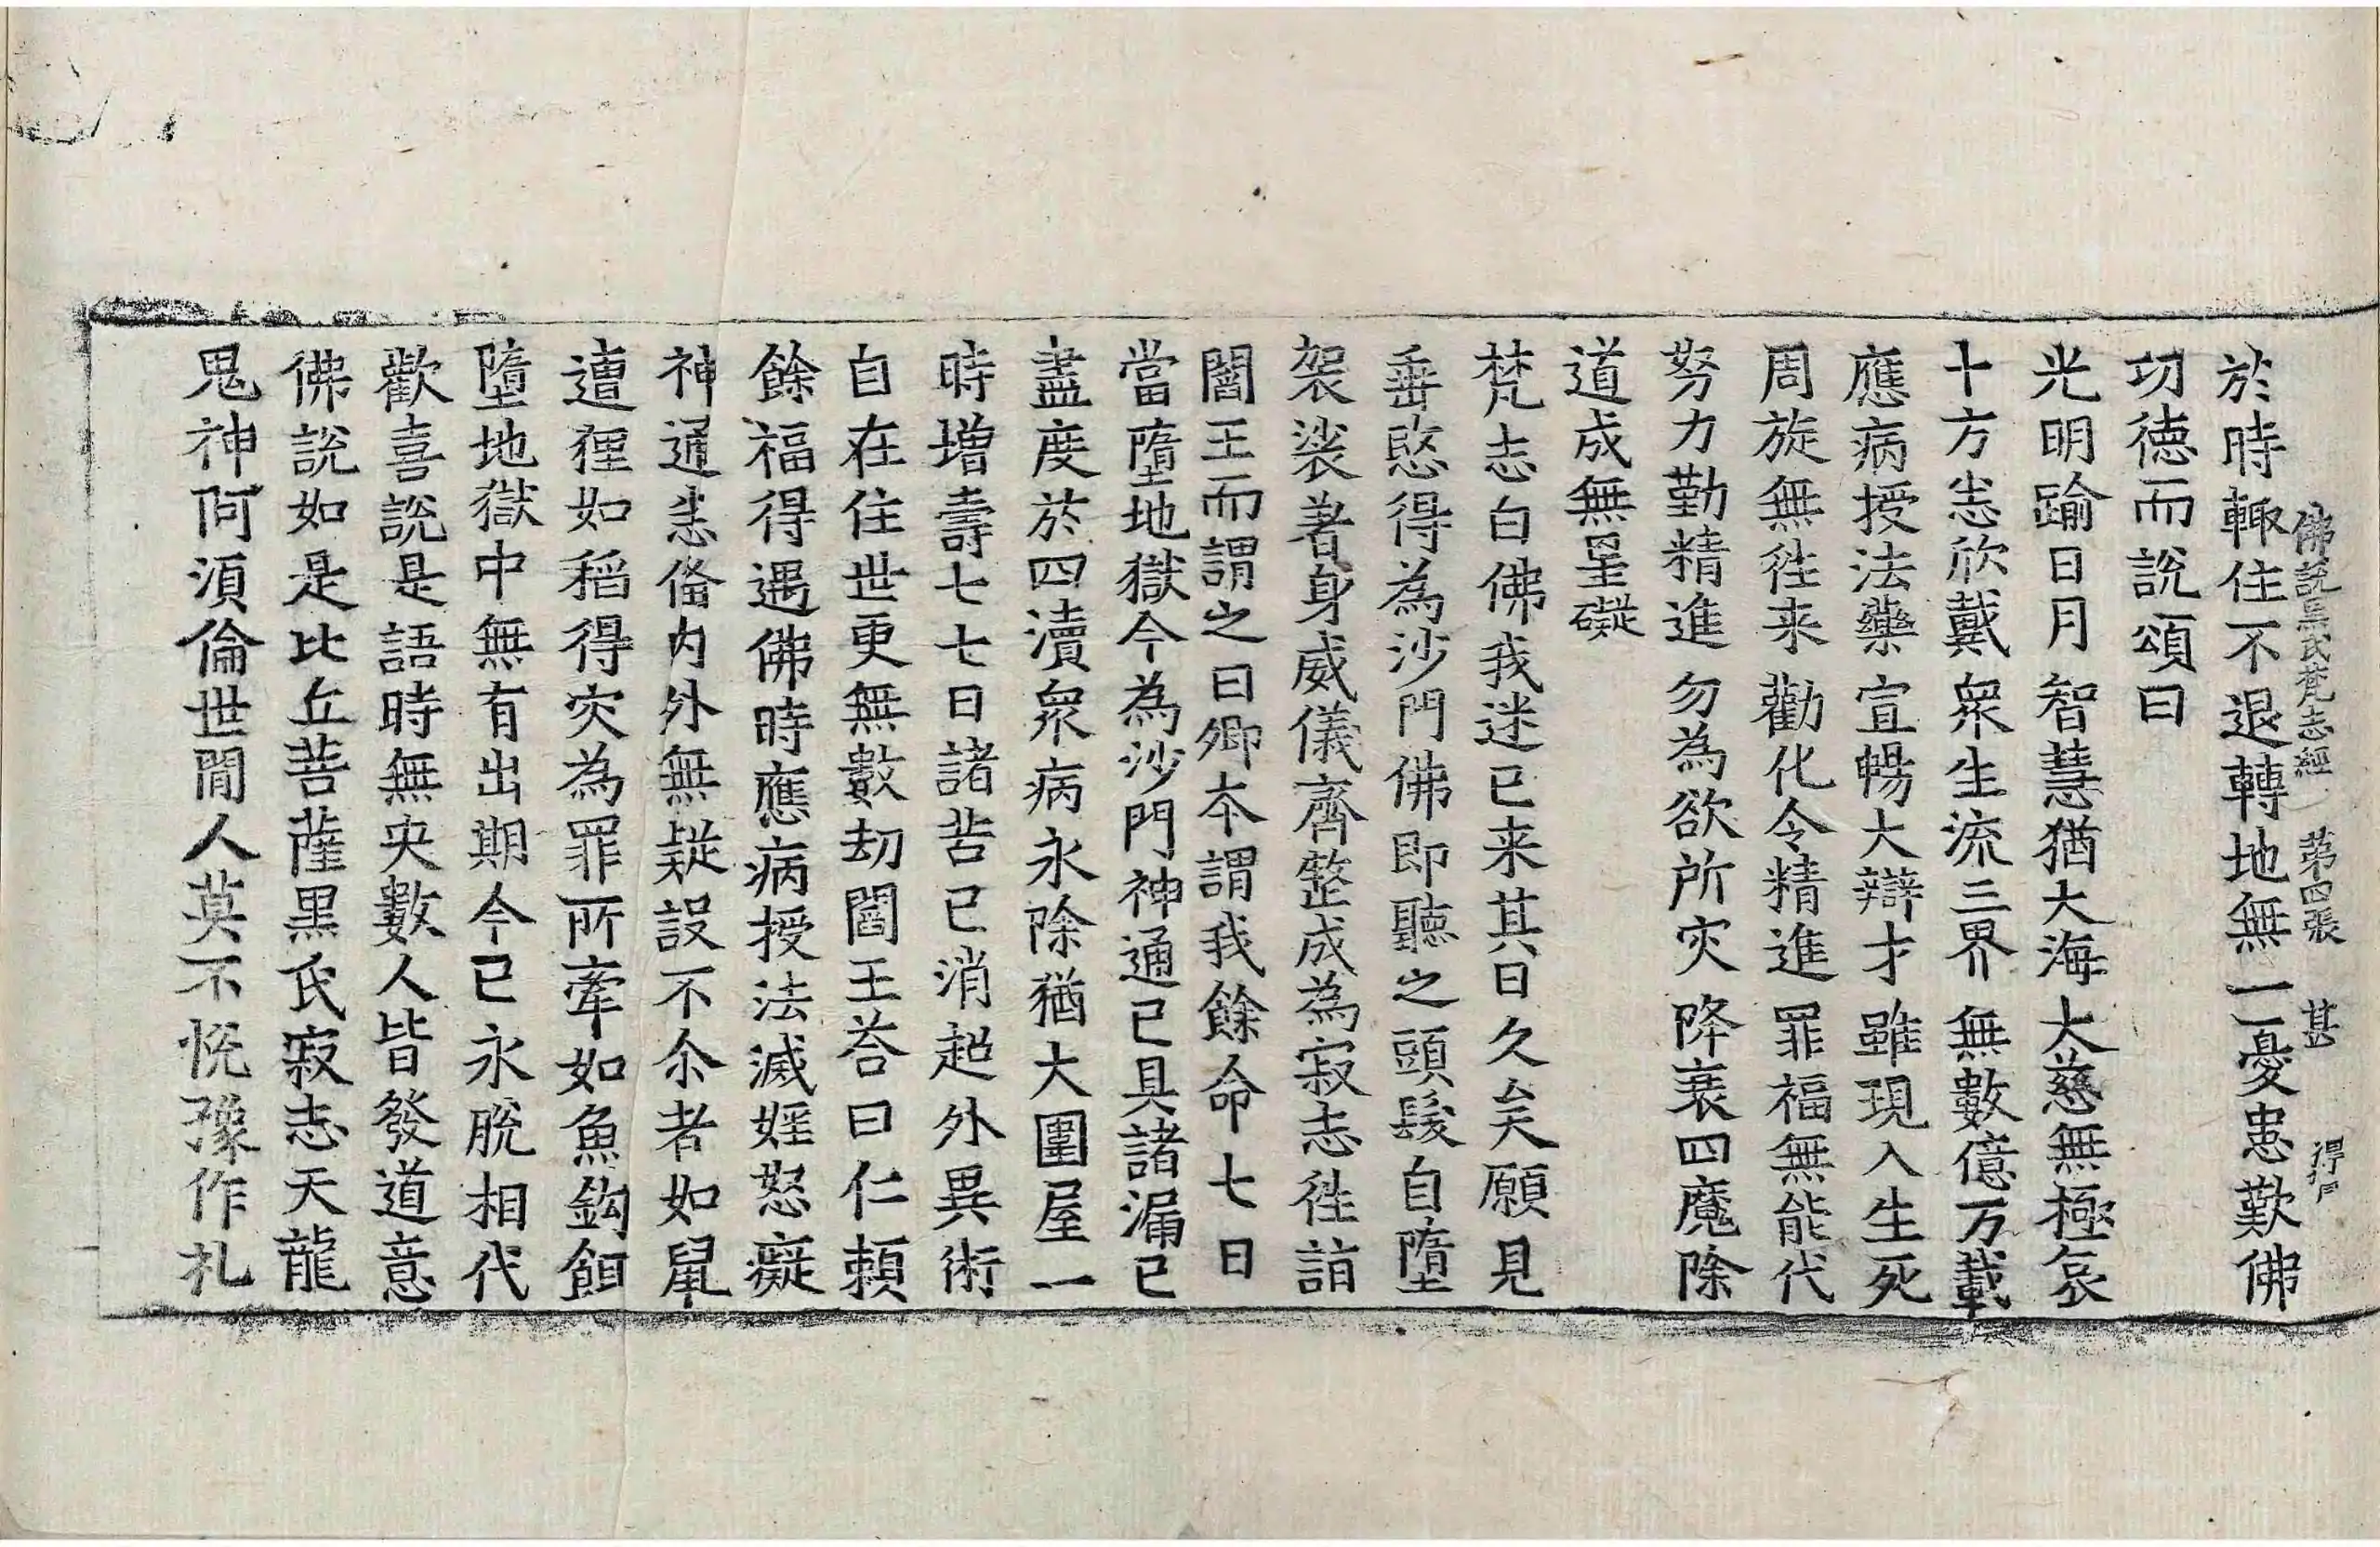 佛說黑氏梵志經 第四張 甚
於時輙住不退轉地無一憂患歎佛
功德而說頌曰
光明踰日月 智慧猶大海 大慈無極哀
十方恙欣戴 衆生流三界 無數億万載
應病授法藥 宣暢大辯才 雖現入生死
周旋無徃来 勸化令精進 罪福無能代
努力勤精進 勿為欲所灾 降衰四魔除
道成無罣礙
梵志白佛我迷已来其日久矣願見
垂愍得為沙門佛即聽之頭髮自墮
袈裟著身威儀齊整成為寂志徃詣
閻王而謂之曰卿夲謂我餘命七日
當墮地獄今為沙門神通已具諸漏已
盡度於四瀆衆病永除猶大圍屋一
時增壽七七日諸苦已消超外異術
自在住世更無數劫閻王荅曰仁賴
餘福得遇佛時應病授法滅婬怒癡
神通恙俻内外無疑設不尒者如鼠
遭狸如稻得灾為罪所牽如魚鈎餌
墮地獄中無有出期今已永脫相代
歡喜說是語時無央數人皆發道意
佛說如是比丘菩薩黒氏寂志天龍
鬼神阿湏倫世閒人莫不恱豫作礼